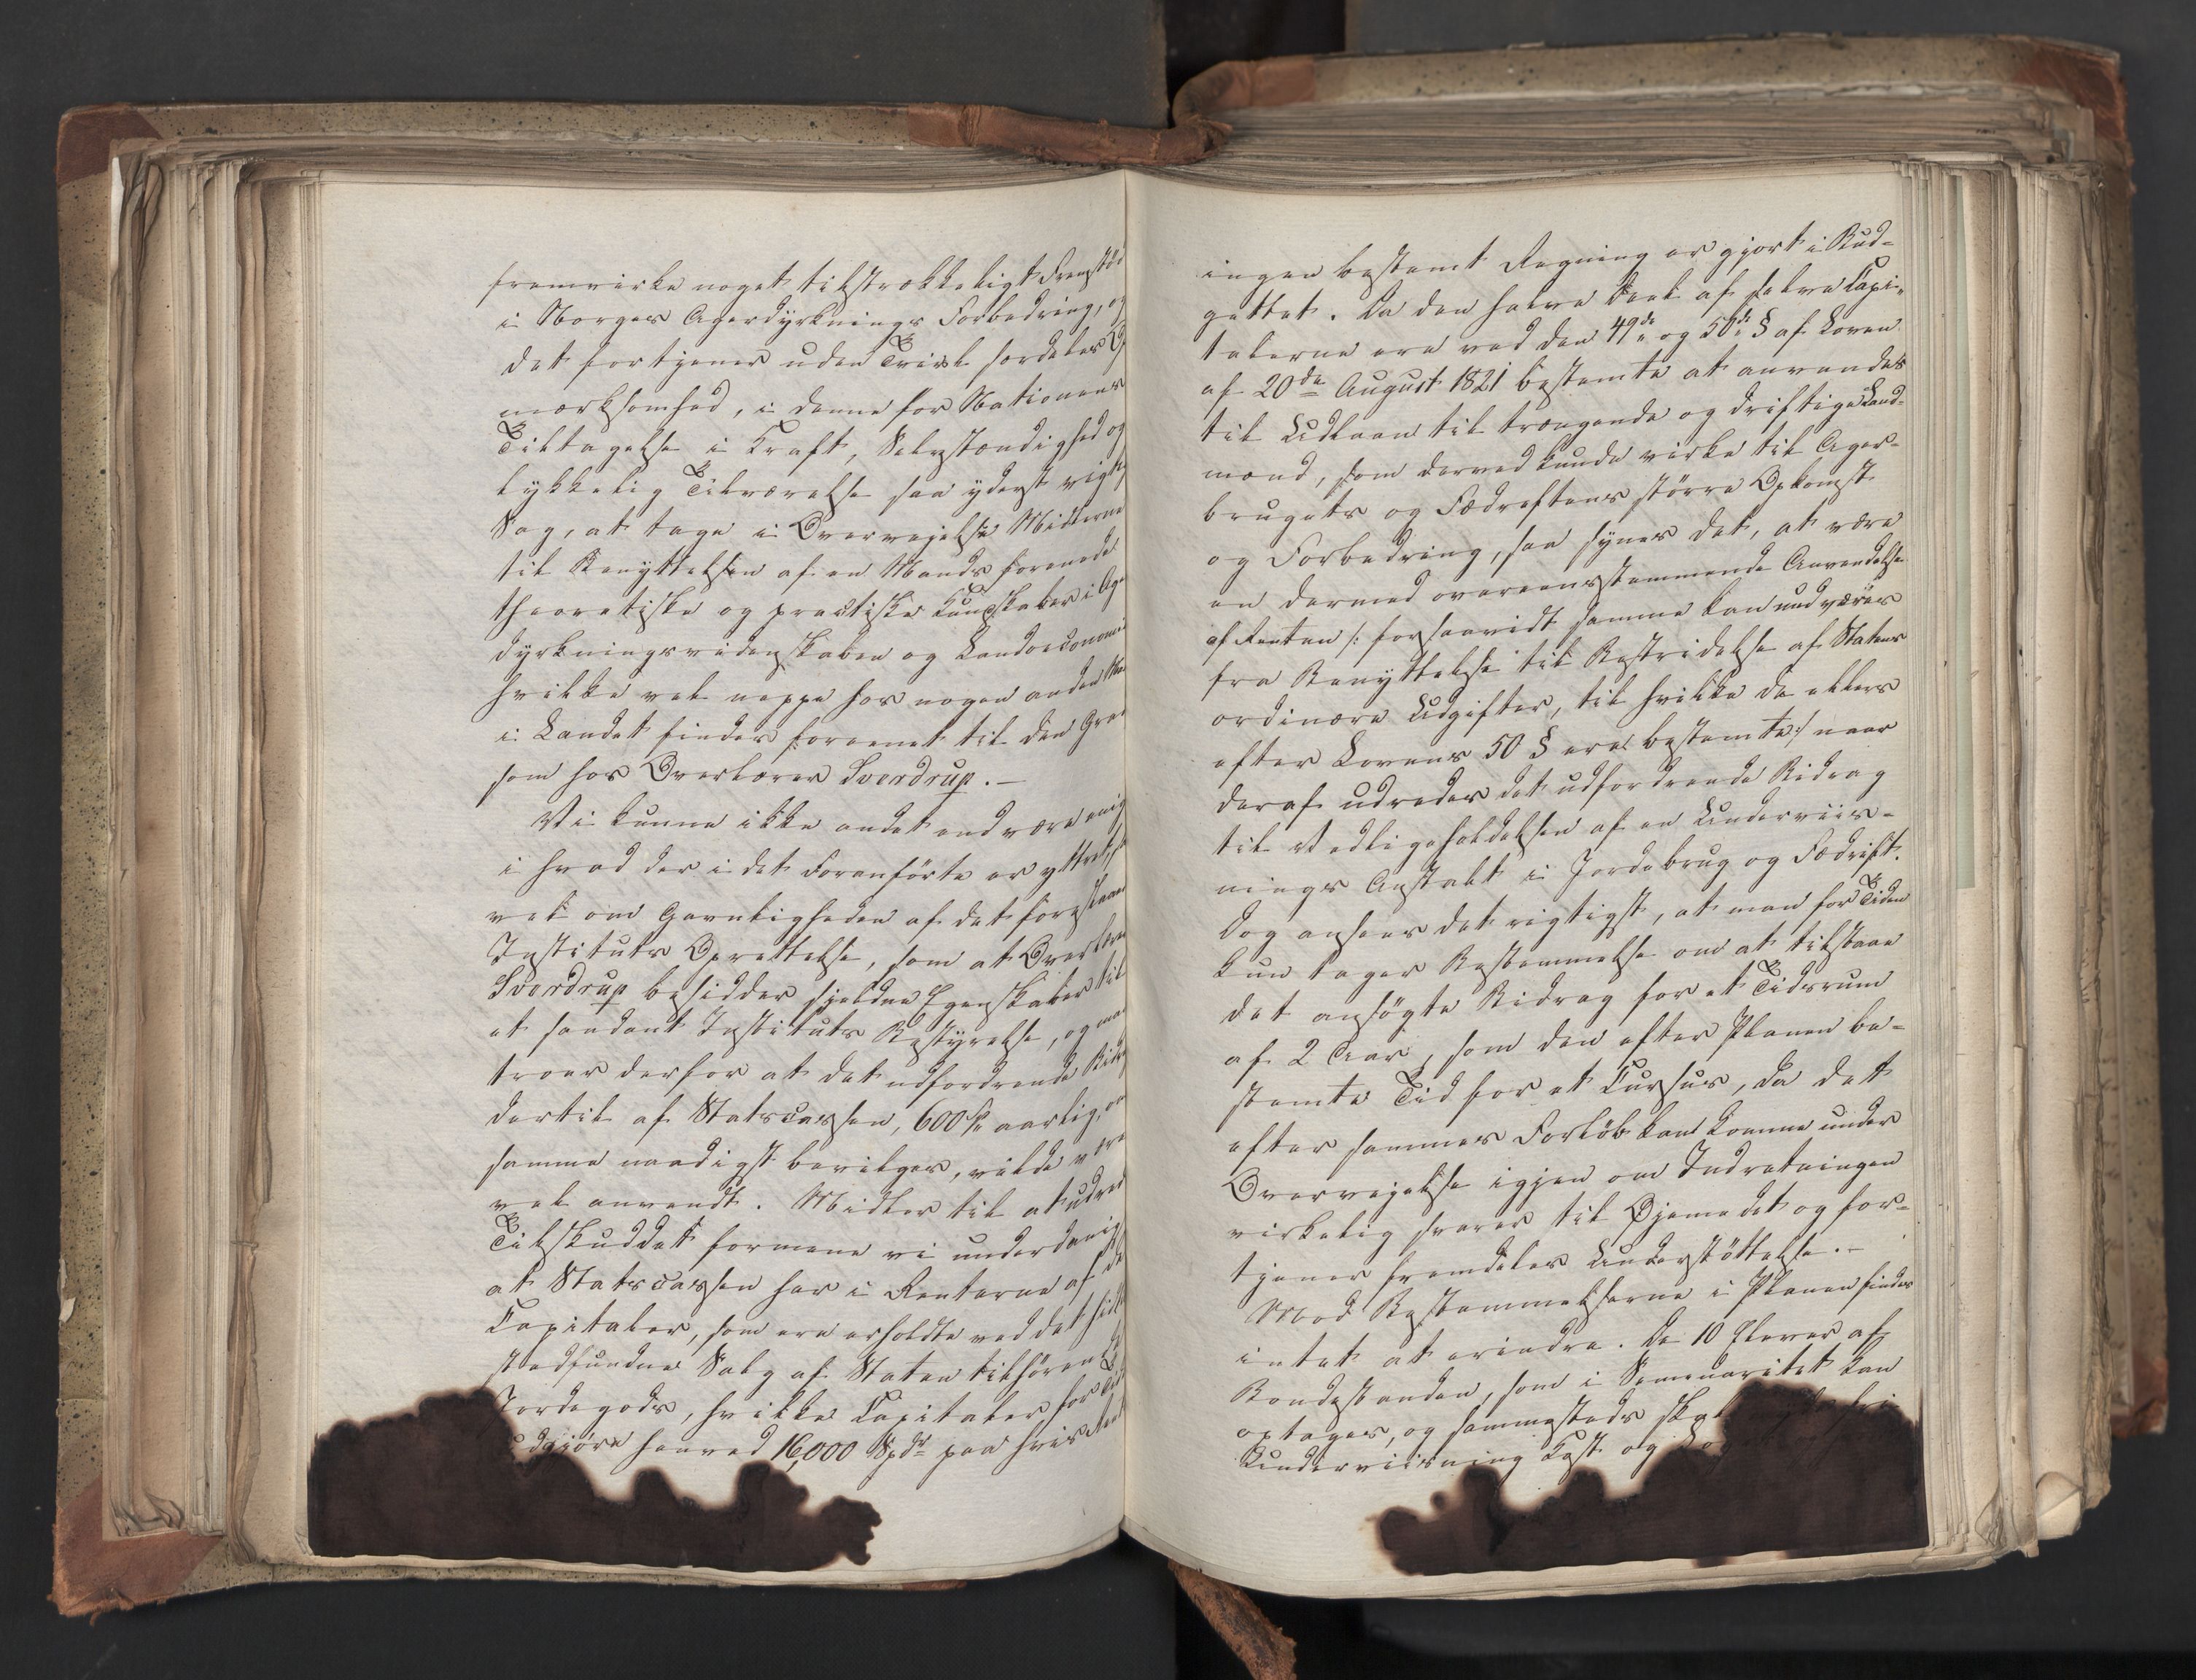 fremvirke noget tilstrækkeligt Fremskrid
i Norges Agerdyrknings Forbedring, og
det fortjener uden Tvivl særdeles Op
mærksomhed, i denne for Nationens
Tiltagelse i Kraft, Selvstændighed og
lykkelig Tilværelse saa yderst vigtig
Sag, at tage i Overveielse Midlerne
til Benyttelsen af en Mands forenede
theoretiske og practiske Kundskaber i Ager
dyrkningsvidenskaben og Landoeconomie
hvilke vel neppe hos nogen anden Mand
i Landet findes forenet til den Grad
som hos Overlærer Sverdrup.-
Vi kunne ikke andet end være enig
i hvad der i det Foranførte er yttret, saa
vel om Gavnligheden af det foreslaaede
Instituts Oprettelse, som at Overlærer
Sverdrup besidder sjeldne Egenskaber til
et saadant Instituts Bestyrelse, og man
troer derfor at det udfordrende Bidrag
dertil af Statscassen, 600 Spd aarlig, om
samme naadigst bevilges, vilde være
vel anvendt. Midler til at udrede
Tilskuddet formene vi underdanigst
at Statscassen har i Renterne af de
Capitaler, som ere erholdte ved det hidtil
stedfundne Salg af Staten tilhørende
Jordegods, hvilke Capitaler for Tiden
udgjøre henved 16,000 Spdr paa hvis
ingen bestemt Regning er gjort i Bud-
gettet. Da den halve Deel af selve Capi-
talerne ere ved den 49de og 50de § af Loven
af 20de August 1821 bestemte at anvendes
til Udlaan til trængende og driftige Land-
mænd, som derved kunde virke til Ager-
brugets og Fædriftens større Opkomst
og Forbedring, saa synes det, at være
en dermed overeensstemmende Anvendelse
af Renten /: forsaavidt samme kan undværes
fra Benyttelse til Bestridelse af Statens
ordinære Udgifter, til hvilke de ellers
efter Lovens 50 § ere bestemte :/ naar
deraf udredes det udfordrende Bidrag
til Vedligeholdelsen af en Underviis-
nings Anstalt i Jordebrug og Fædrift.
Dog ansees det rigtigst, at man for Tiden
kun tager Bestemmelse om at tilstaae
det ansøgte Bidrag for et Tidsrum
af 2 Aar, som den efter Planen be-
stemte Tid for et Cursus, da det
efter sammes Forløb kan komme under
Overveielse igjen om Indretningen
virkelig svarer til Øjemedet og for-
tjener fremdeles Understøttelse.-
Mod Bestemmelserne i Planen findes
intet at erindre. De 10 Elever af
Bondestanden, som i Semenariet kan
optages, og sammesteds
Underviisning Kost og